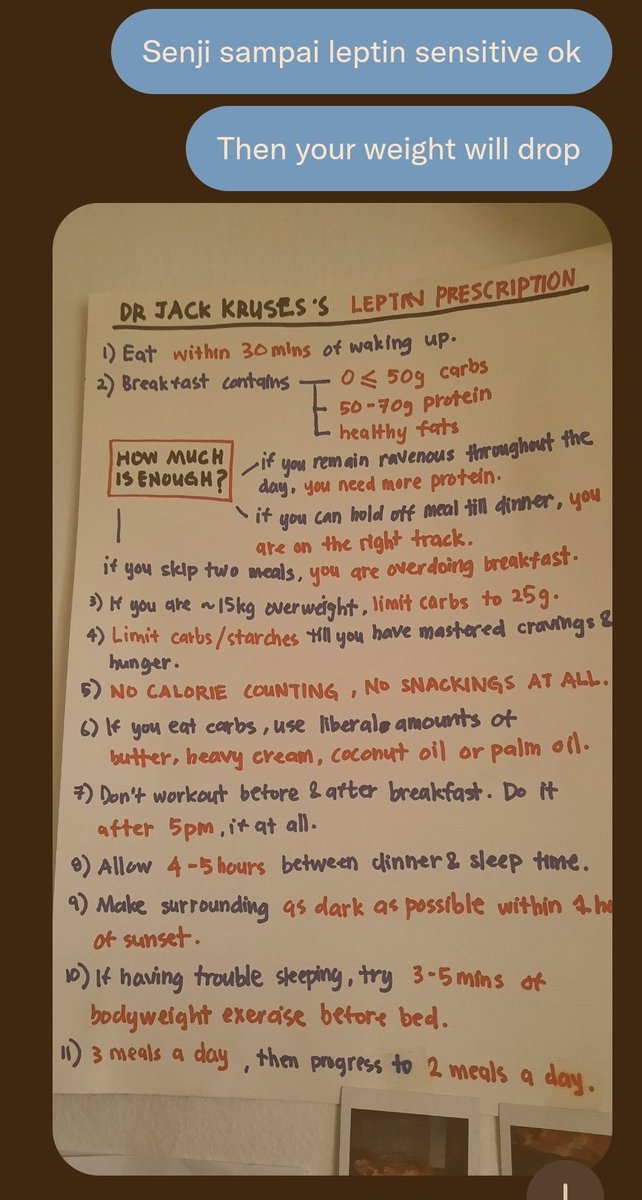 Senji sampai leptin sensitive ok
Then your weight will drop
DR JACK KRUSES'S LEPTIN PRESCRIPTION
1) Eat within 30mins of waking up.
2) Breakfast contains
0 ≤ 50g carbs
50-70g protein
healthy fats
HOW MUCH
IS ENOUGH?
if you remain ravenous throughout the
day, you need more protein.
if you can hold off meal till dinner, you
are on the right track.
if you skip two meals, you are overdoing breakfast.
3) If you are ~15kg overweight, limit carbs to 25g.
4) Limit carbs/starches till you have mastered cravings &
hunger.
5) NO CALORIE COUNTING, NO SNACKINGS AT ALL.
6) If you eat carbs, use liberal amounts of
butter, heavy cream, coconut oil or palm oil.
7) Don't workout before & after breakfast. Do it
after 5pm, if at all.
8) Allow 4-5 hours between dinner & sleep time.
9) Make surrounding as dark as possible within 1 ho
of sunset.
10) If having trouble sleeping, try 3-5mins of
bodyweight exercise before bed.
11) 3 meals a day, then progress to 2 meals a day.